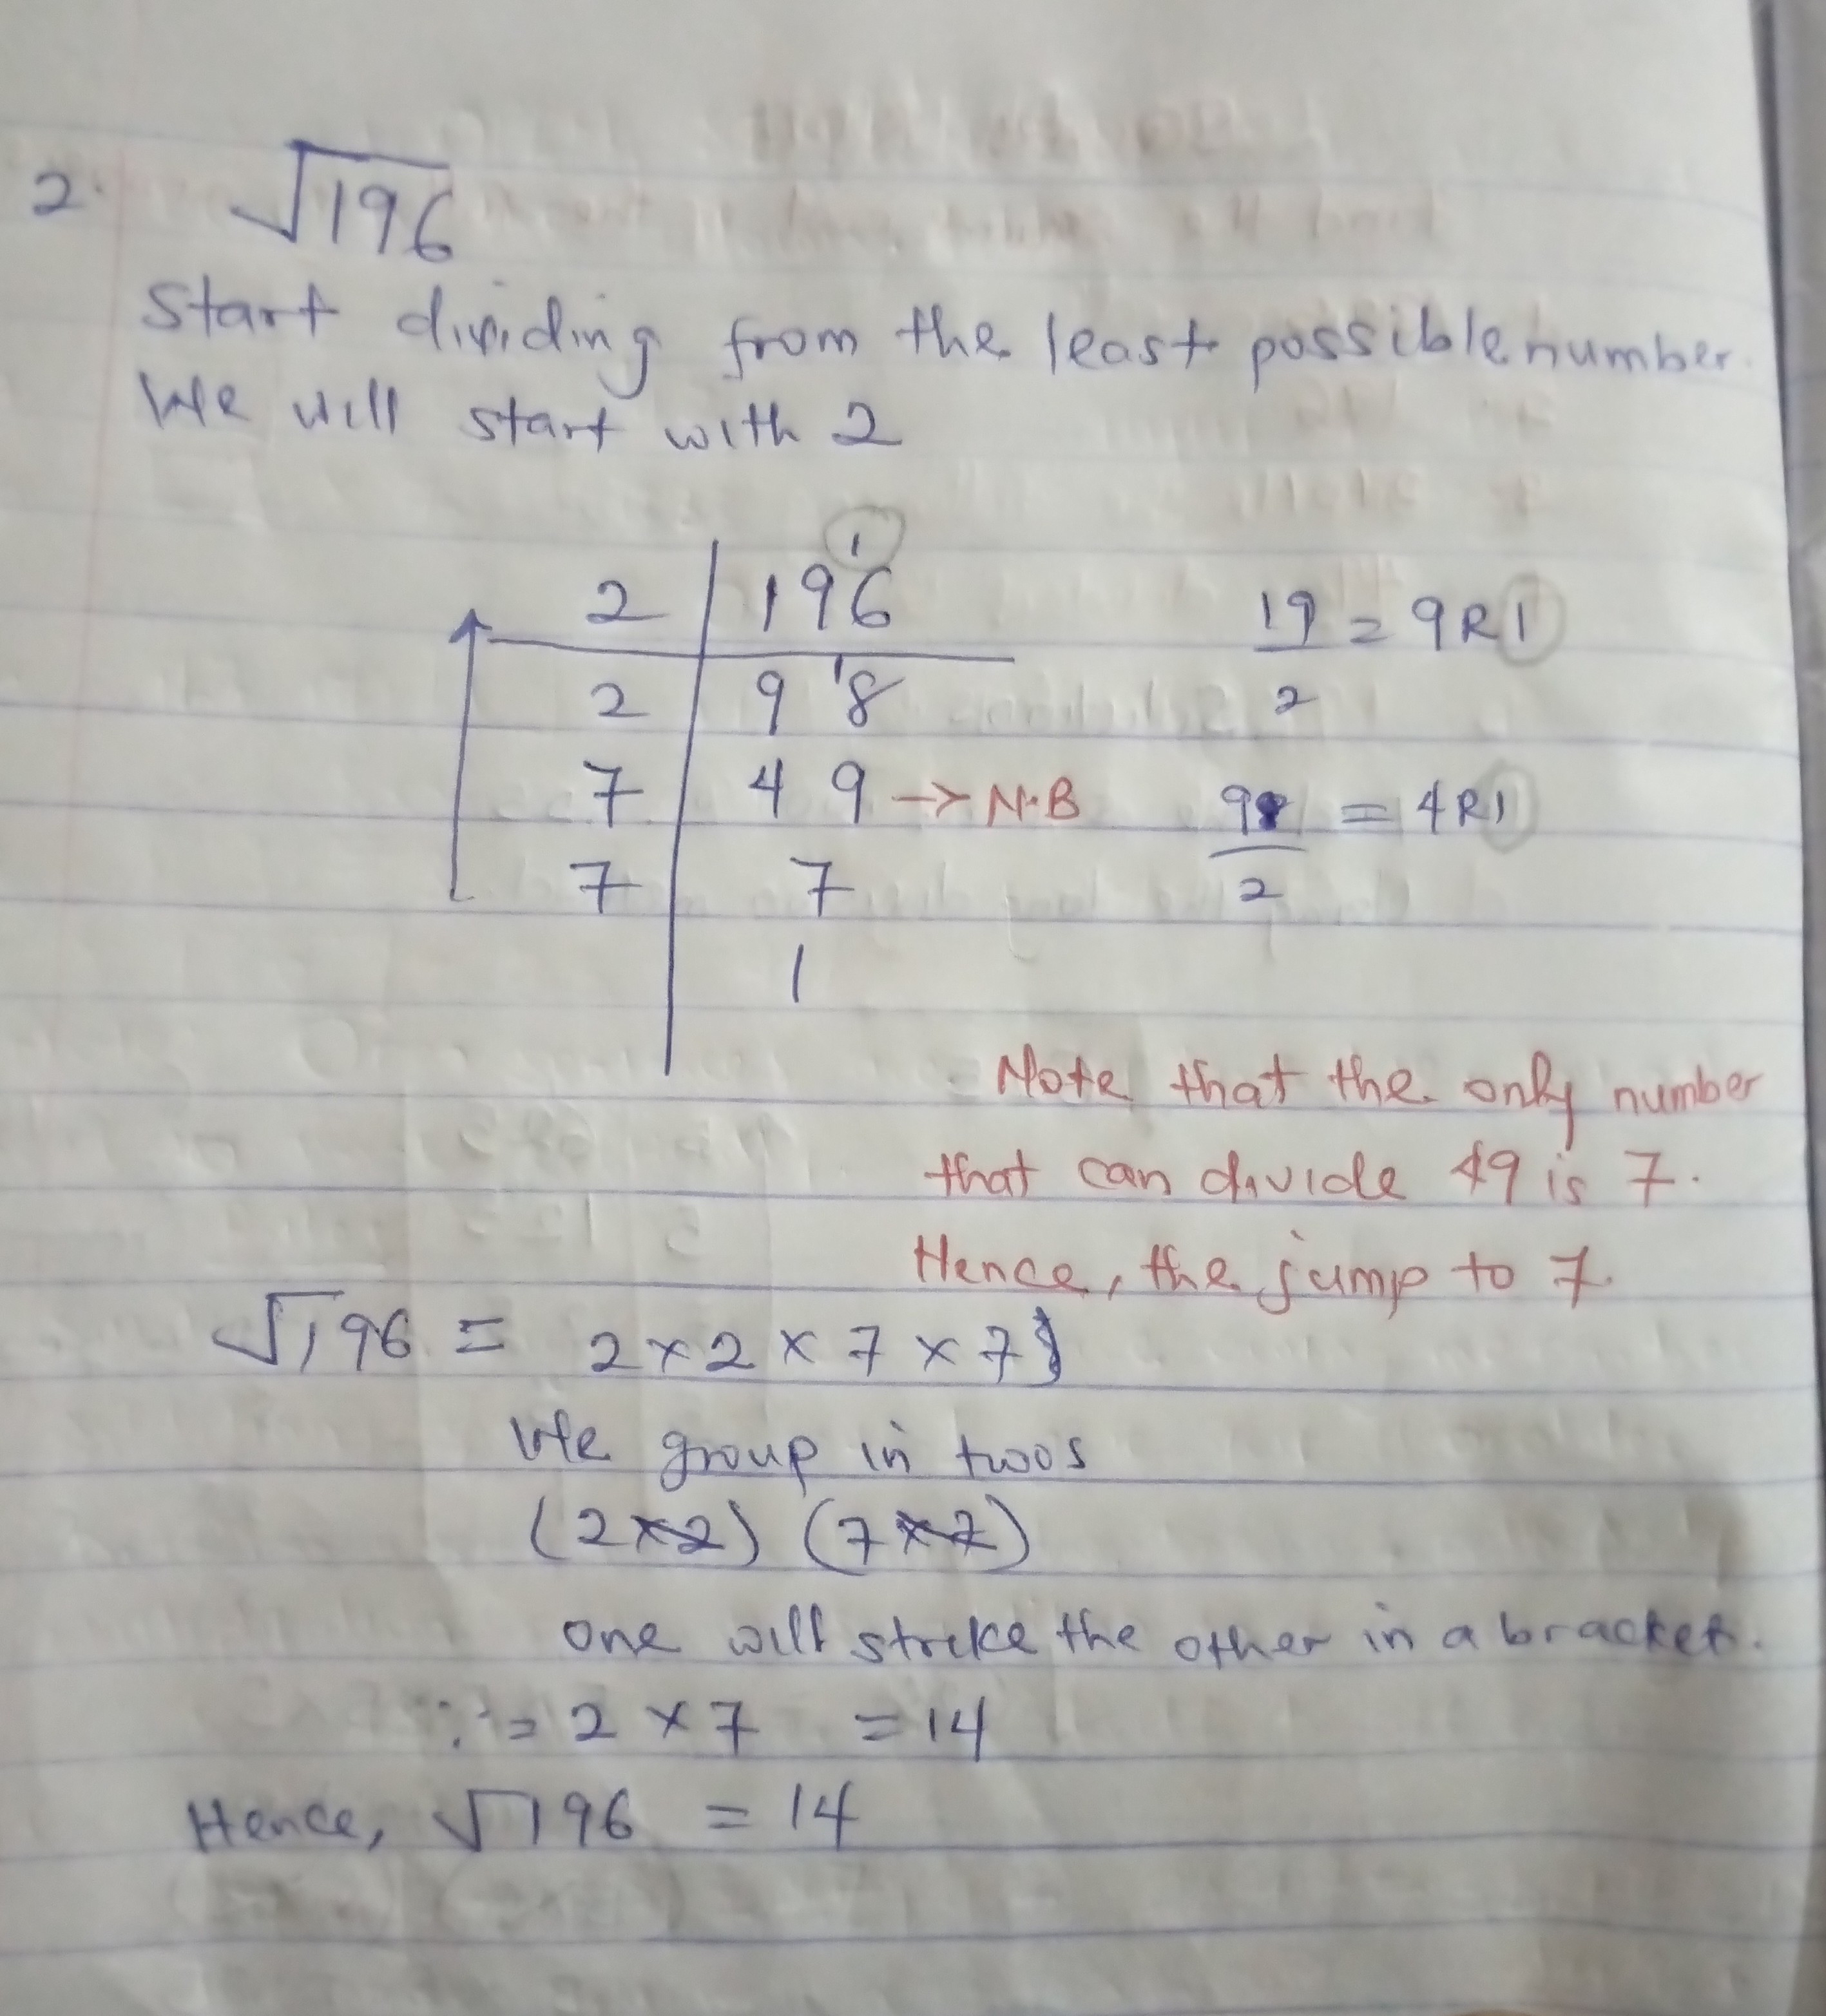 2. √196
Start dividing from the least possible number.
We will start with 2
1
2 | 196
2 | 9 ¹8
7 | 4 9 → N.B
7 | 7
1
19/2 = 9R1
9/2 = 4R1
Note that the only number
that can divide 49 is 7.
Hence, the jump to 7.
√196 = 2 × 2 × 7 × 7
We group in twos
(2×2) (7×7)
one will strike the other in a bracket.
∴ = 2 × 7 = 14
Hence, √196 = 14